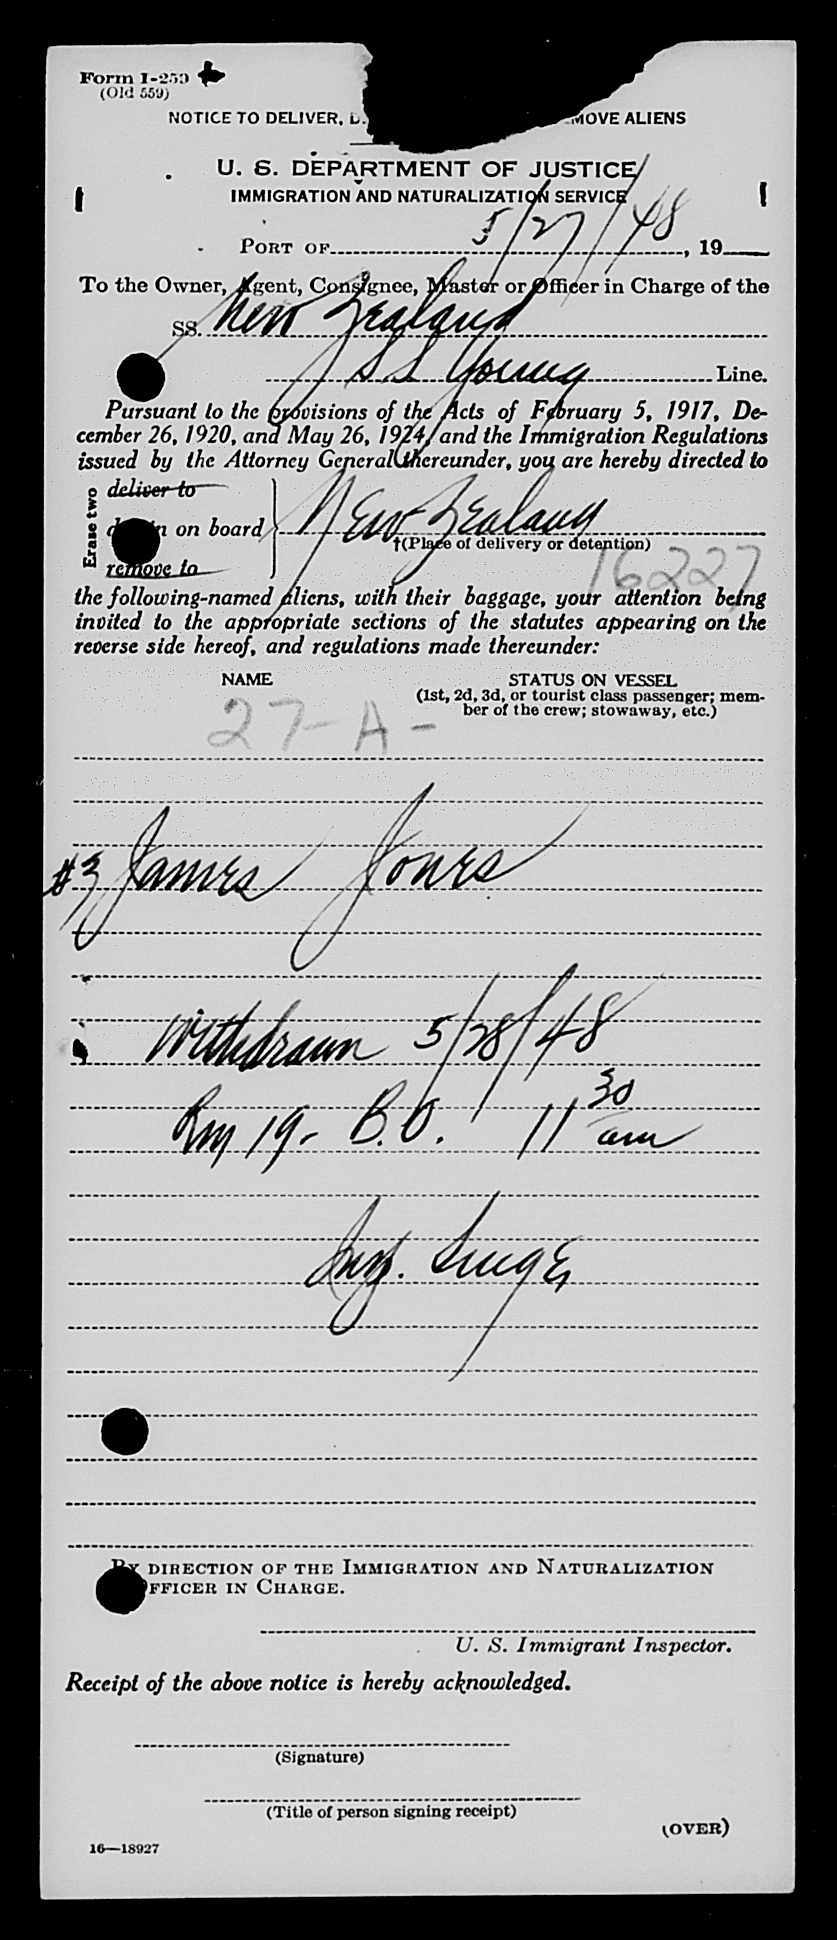 Form I-259
(Old 559)
NOTICE TO DELIVER, MOVE ALIENS
U. S. DEPARTMENT OF JUSTICE
IMMIGRATION AND NATURALIZATION SERVICE
PORT OF 5/27/48, 19
To the Owner, Agent, Consignee, Master or Officer in Charge of the
SS. New Zealand
J S.S. Young Line.
Pursuant to the provisions of the Acts of February 5, 1917, De-
cember 26, 1920, and May 26, 1924, and the Immigration Regulations
issued by the Attorney General thereunder, you are hereby directed to
Erase two
deliver to
on board New Zealand
†(Place of delivery or detention)
remove to
16227
the following-named aliens, with their baggage, your attention being
invited to the appropriate sections of the statutes appearing on the
reverse side hereof, and regulations made thereunder:
NAME STATUS ON VESSEL
(1st, 2d, 3d, or tourist class passenger; mem-
ber of the crew; stowaway, etc.)
27-A-
#3 James Jones
Withdrawn 5/28/48
Rm 19- B.O. 11 30 am
By DIRECTION OF THE IMMIGRATION AND NATURALIZATION
OFFICER IN CHARGE.
U. S. Immigrant Inspector.
Receipt of the above notice is hereby acknowledged.
(Signature)
(Title of person signing receipt)
(OVER)
16—18927